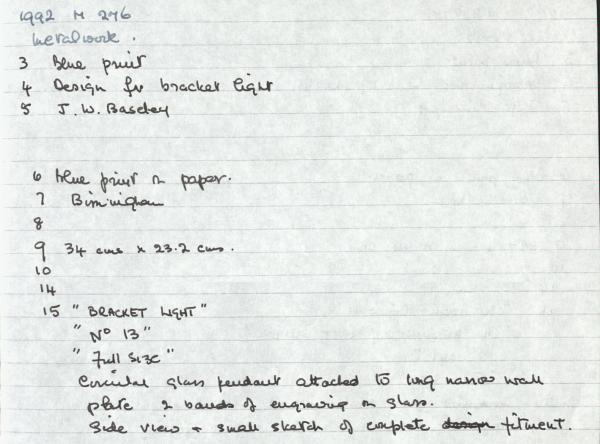 1992 M 276
Metalwork.
3 Blue print
4 Design for bracket light
5 J. W. Baseley
6 Blue print on paper.
7 Birmingham
8
9 34 cms x 23.2 cms.
10
14
15 " BRACKET LIGHT "
" No 13 "
" Full SIZE "
Circular glass pendant attached to long narrow wall
plate 2 bands of engraving on glass.
Side view + small sketch of complete design fitment.